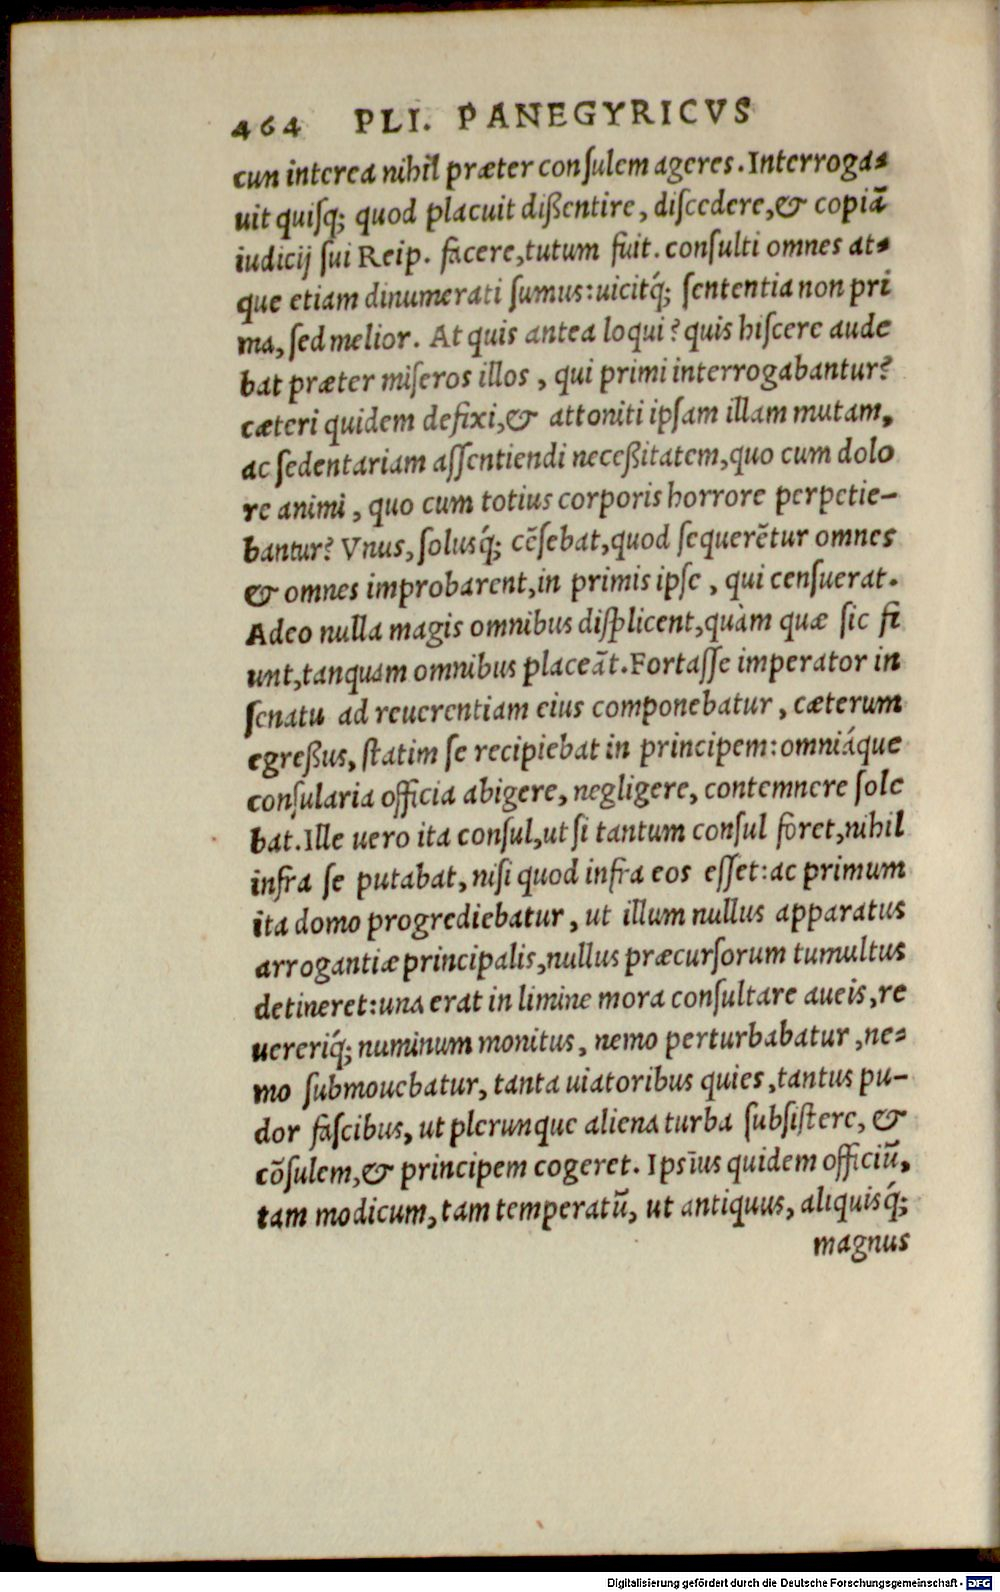 464 PLI. PANEGYRICVS
cun interea nihil præter consulem ageres. Interroga-
uit quisq; quod placuit dißentire, discedere, & copiā
iudicij sui Reip. facere, tutum fuit. consulti omnes at-
que etiam dinumerati sumus: uicitq́; sententia non pri
ma, sed melior. At quis antea loqui? quis hiscere aude
bat præter miseros illos, qui primi interrogabantur?
cæteri quidem defixi, & attoniti ipsam illam mutam,
ac sedentariam assentiendi neceßitatem, quo cum dolo
re animi, quo cum totius corporis horrore perpetie-
bantur? Vnus, solusq́; cēsebat, quod sequerētur omnes
& omnes improbarent, in primis ipse, qui censuerat.
Adeo nulla magis omnibus displicent, quàm quæ sic fi
unt, tanquam omnibus placeāt. Fortasse imperator in
senatu ad reuerentiam eius componebatur, cæterum
egreßus, statim se recipiebat in principem: omniáque
consularia officia abigere, negligere, contemnere sole
bat. Ille uero ita consul, ut si tantum consul foret, nihil
infra se putabat, nisi quod infra eos esset: ac primum
ita domo progrediebatur, ut illum nullus apparatus
arrogantiæ principalis, nullus præcursorum tumultus
detineret: una erat in limine mora consultare aueis, re
uereriq́; numinum monitus, nemo perturbabatur, ne-
mo submouebatur, tanta uiatoribus quies, tantus pu-
dor fascibus, ut plerunque aliena turba subsistere, &
cōsulem, & principem cogeret. Ipsīus quidem officiū,
tam modicum, tam temperatū, ut antiquus, aliquisq́;
magnus
Digitalisierung gefördert durch die Deutsche Forschungsgemeinschaft - DFG